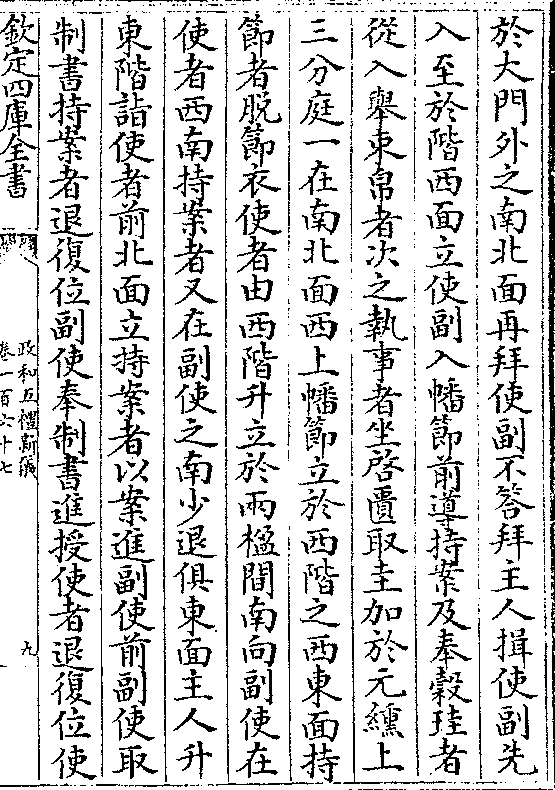 於大門外之南北面再拜使副不答拜主人揖使副先
入至於階西面立使副入幡節前導持案及奉穀珪者
從入舉束帛者次之執事者坐啓匱取圭加於元纁上
三分庭一在南北面西上幡節立於西階之西東面持
節者脱節衣使者由西階升立於兩楹間南向副使在
使者西南持案者又在副使之南少退俱東面主人升
東階詣使者前北面立持案者以案進副使前副使取
制書持案者退復位副使奉制書進授使者退復位使
欽定四庫全書
政和五禮新儀
卷一百六十七
九